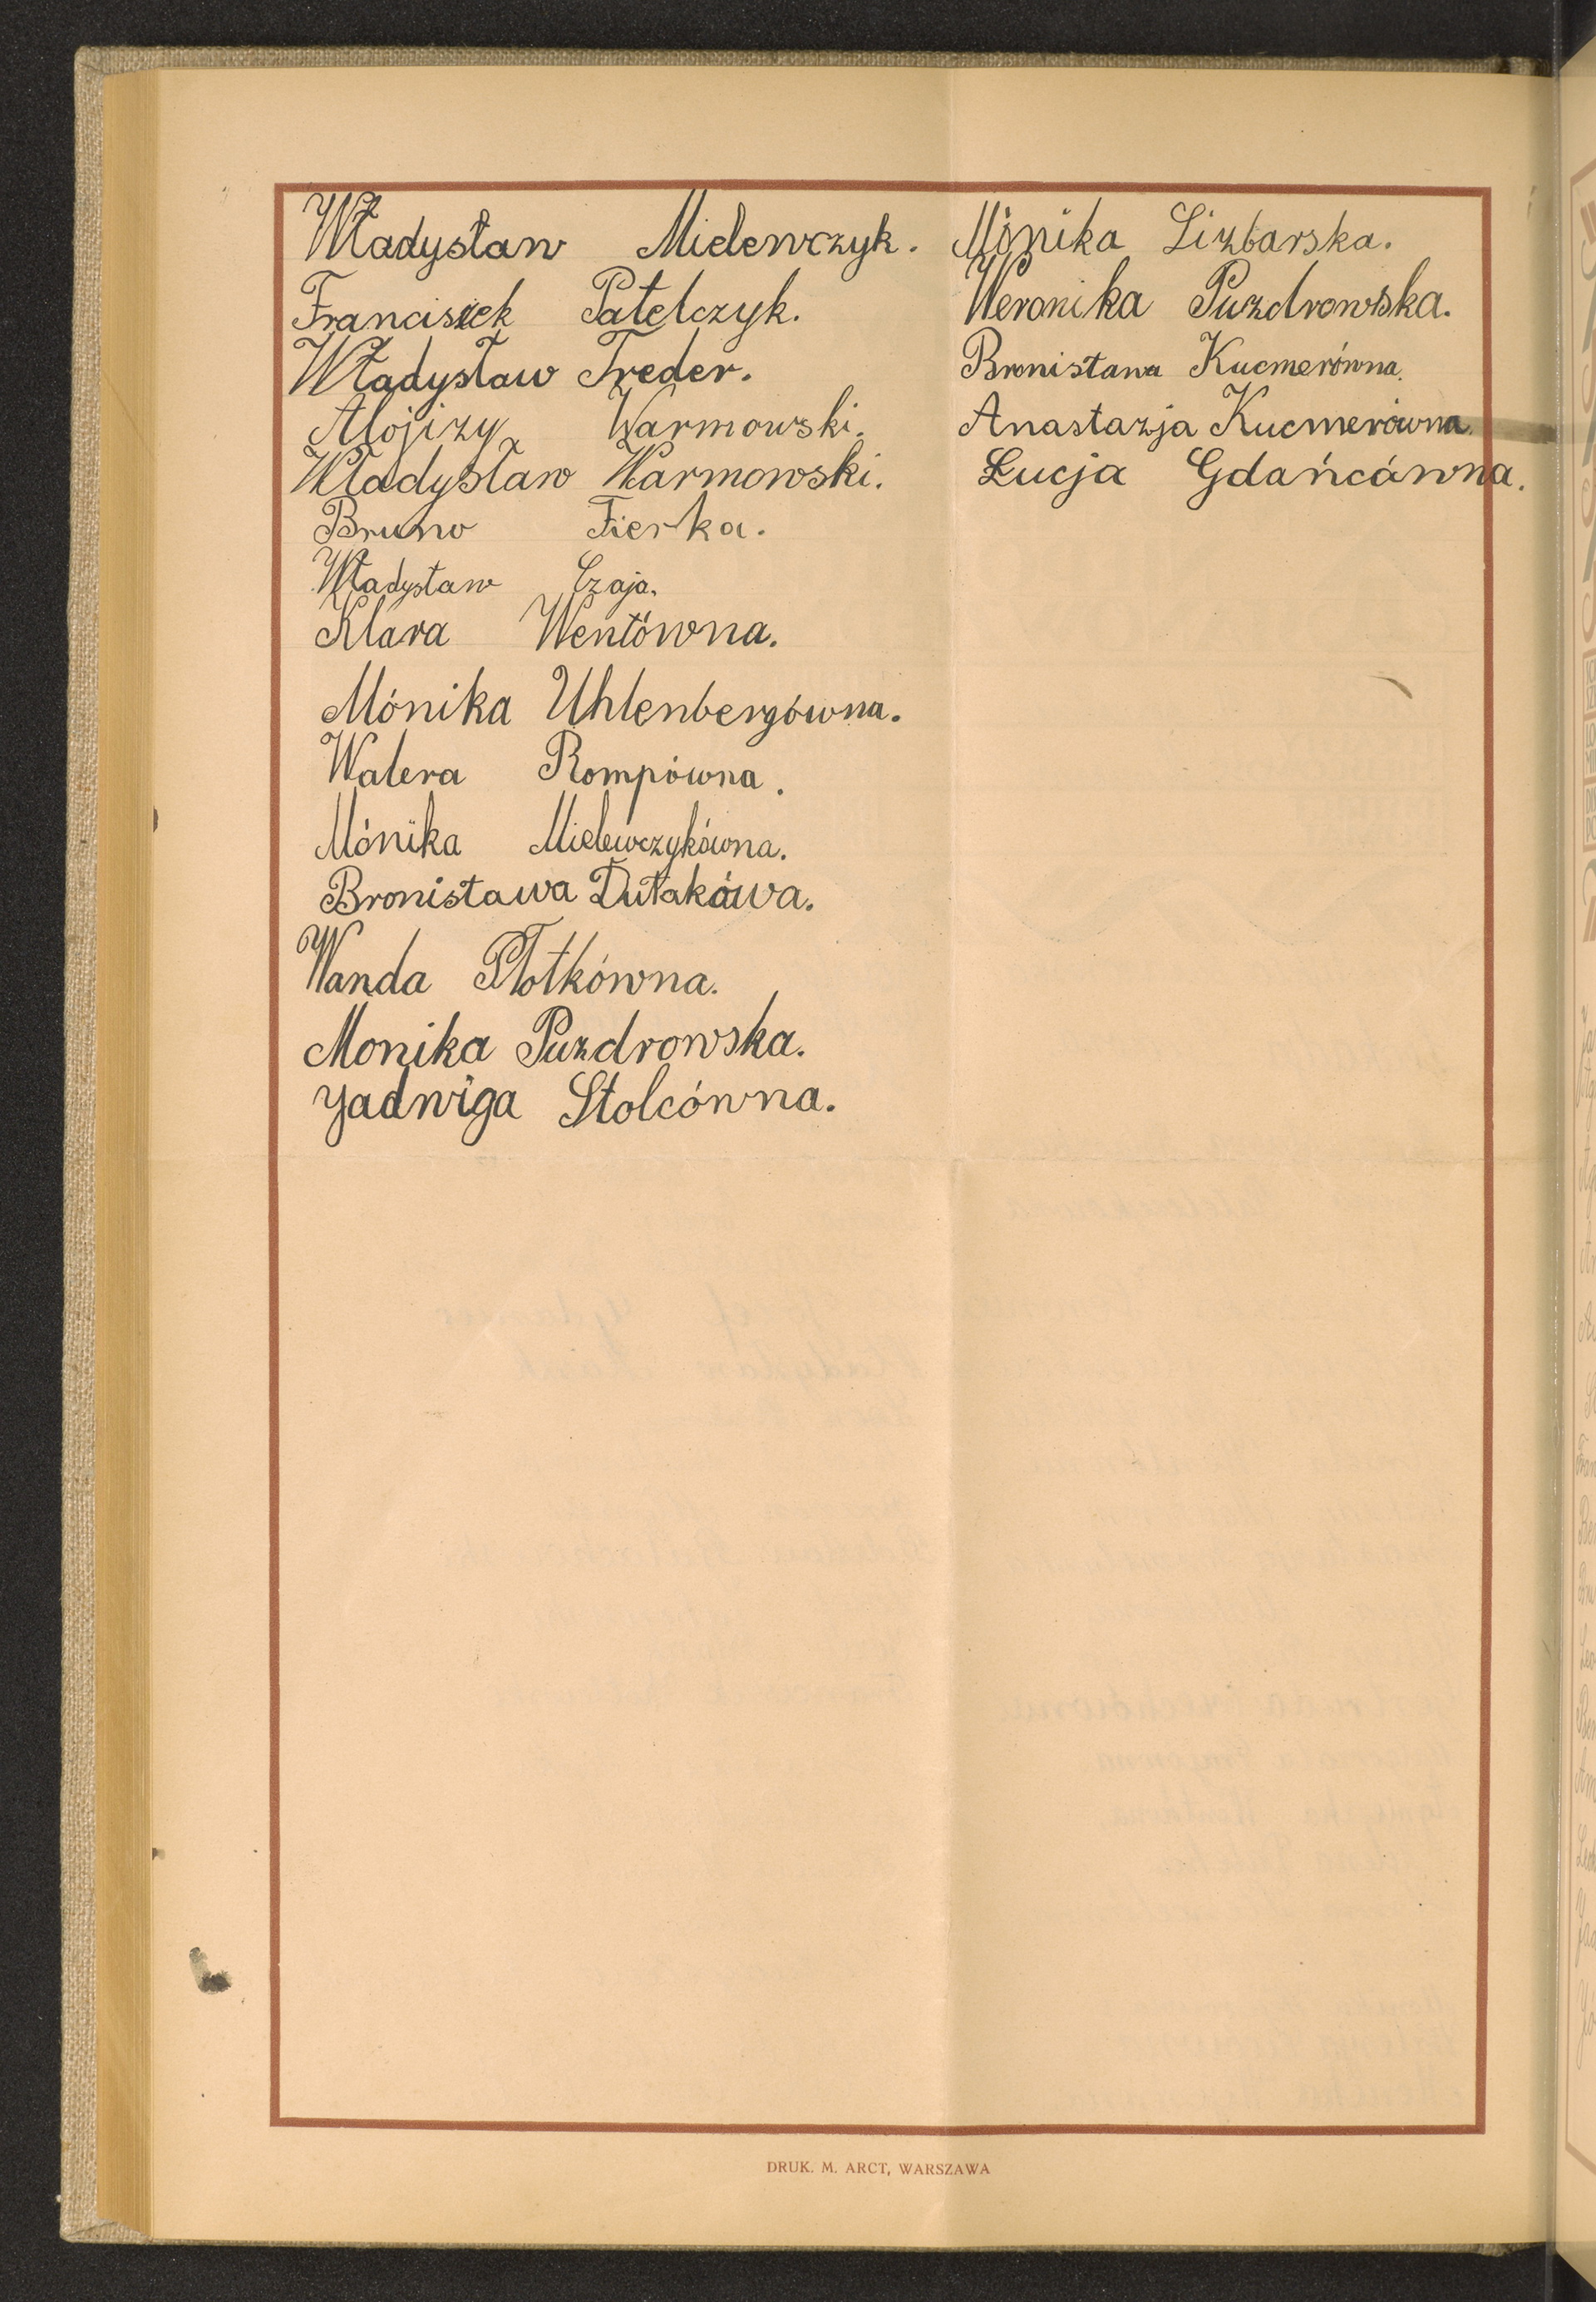 Władysław Mielewczyk.
Franciszek Patelczyk.
Władysław Treder.
Alojizy Warmowski.
Władysław Warmowski.
Bruno Fierka.
Władysław Czaja.
Klara Wentówna.
Mónika Uhlenbergówna.
Walera Rompówna.
Mónika Mielewczykówna.
Bronistawa Dułakówa.
Wanda Płotkówna.
Monika Puzdrowska.
Jadwiga Stolcówna.
Mónika Lizbarska.
Weronika Puzdrowska.
Bronistawa Kucmerówna.
Anastazja Kucmerówna.
Łucja Gdańcówna.
DRUK. M. ARCT, WARSZAWA